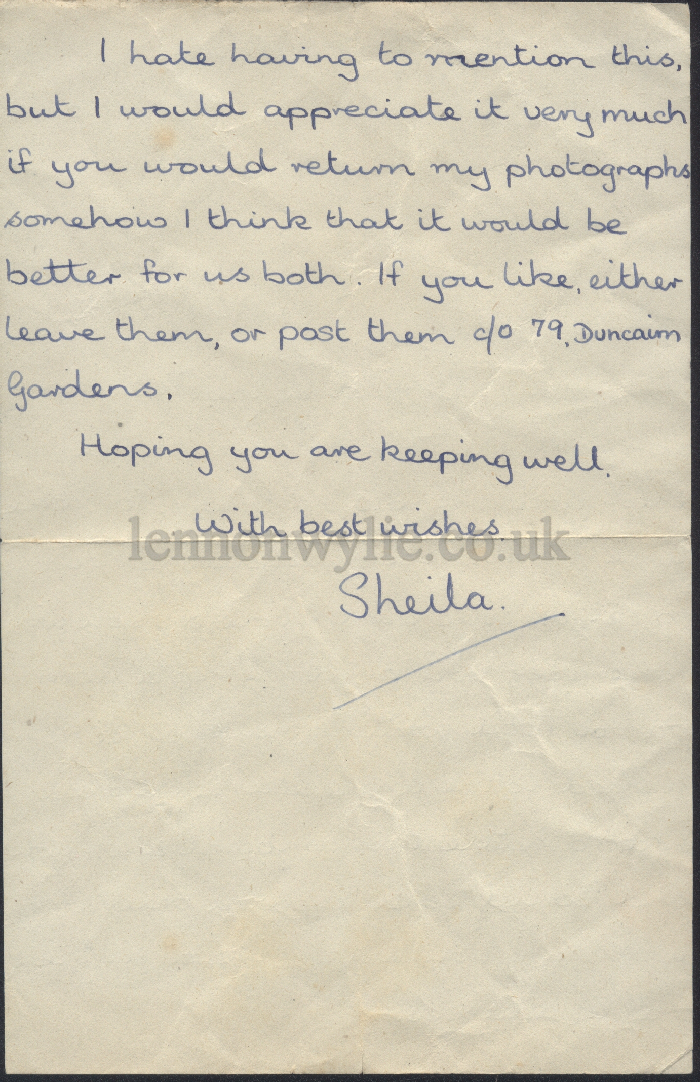 I hate having to mention this,
but I would appreciate it very much
if you would return my photographs
somehow I think that it would be
better for us both. If you like, either
leave them, or post them c/o 79, Duncairn
Gardens.
Hoping you are keeping well.
With best wishes
lennonwylie.co.uk
Sheila.